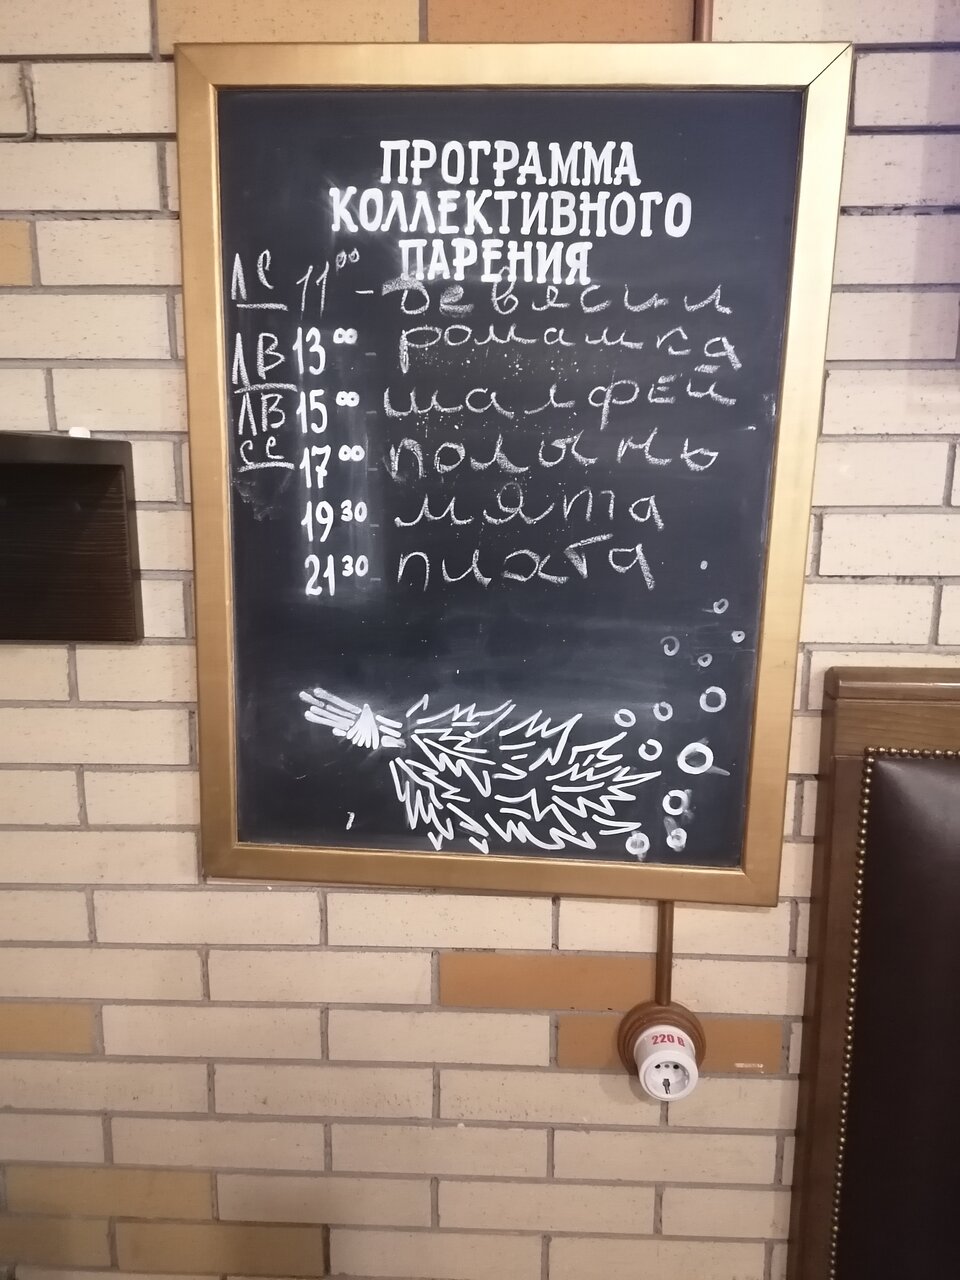 ПРОГРАММА
КОЛЛЕКТИВНОГО
ПАРЕНИЯ
ЛС 11⁰⁰ - девясил
ЛВ 13⁰⁰ - ромашка
ЛВ 15⁰⁰ - шалфей
СС 17⁰⁰ - полынь
19³⁰ - мята
21³⁰ - пихта
220 В